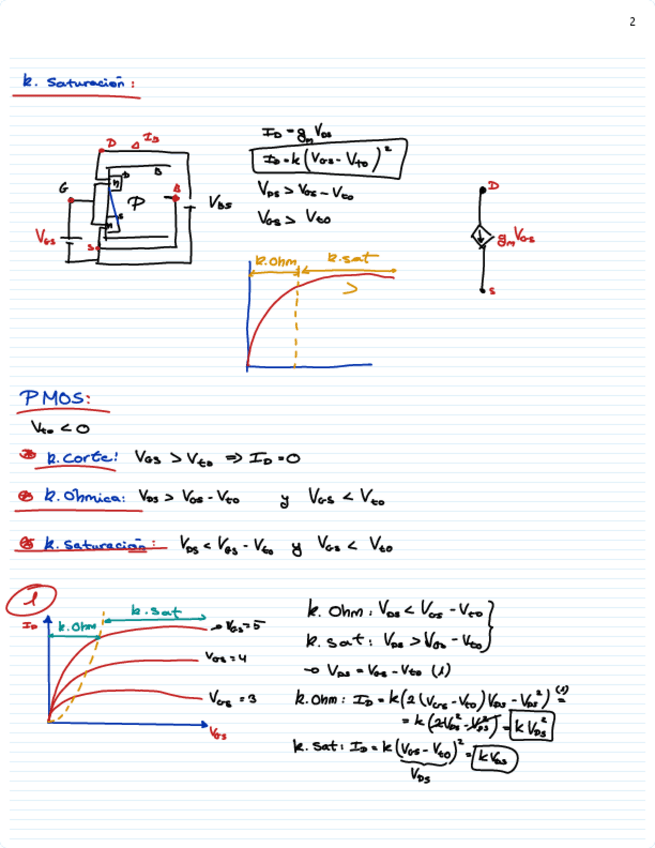 2
k. Saturación:
D I_D
G D B B
n P
V_DS
V_GS
n S
S
I_D = g_m V_GS
I_D = k (V_GS - V_to)^2
V_DS > V_GS - V_to
V_GS > V_to
D
g_m V_GS
S
k.ohm k.sat
>
PMOS:
V_to < 0
k. Corte! V_GS > V_to ⇒ I_D = 0
k. Ohmica: V_DS > V_GS - V_to y V_GS < V_to
k. Saturación: V_DS < V_GS - V_to y V_GS < V_to
1
I_D k.Ohm k.sat
V_GS = 5
V_GS = 4
V_GS = 3
V_GS
k. Ohm: V_DS < V_GS - V_to
k. sat: V_DS > V_GS - V_to
→ V_DS = V_GS - V_to (1)
k. Ohm: I_D = k (2 (V_GS - V_to) V_DS - V_DS^2) (1) =
= k (2 V_DS^2 - V_DS^2) = k V_DS^2
k. Sat: I_D = k (V_GS - V_to)^2 = k V_DS
V_DS